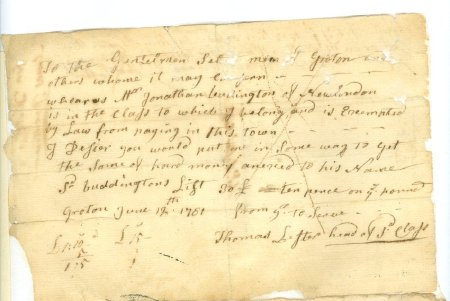 To the Gentelmen Select men of Groton and
others whome it may Consern
whereas Mr Jonathan buddington of Newlondon
is in the Class to which I belong and is Exempted
by Law from paying in this town
I Desier you would put me in Some way to get
the Same of hard money anexed to his Name
Sd buddingtons List 30 £ ten pence on ye pound
Groton June 12th 1781 from yrs to Serve
Thomas Lester head of Sd Class